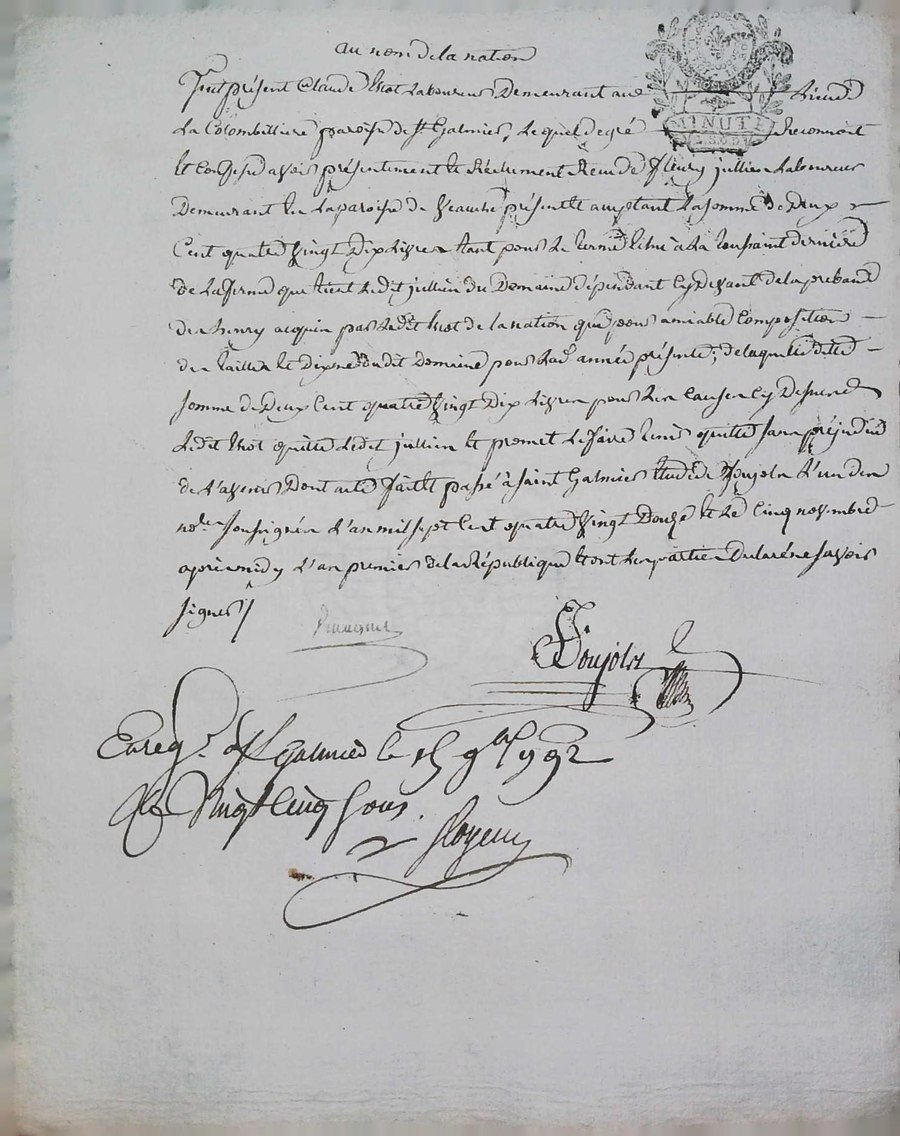 au nom de la nation
Fut présent Claude laboureur Demeurant au
La Colombilliere paroisse de St Galmier, lequel de gré Reconnoit
MINUTE
et Confesse avoir présentement et Réellement Reçu de fleury jullien Laboureur
Demeurant en la paroisse de Veauche présent et acceptant la somme de Deux
Cent quatre vingt Dix livres tant pour le terme échu a la toussaint derniere
de la ferme que tient ledit jullien du Domaine dépendant cy devant de la prebande
des henry acquis par ledit de la nation que pour amiable Composition
des tailles et Dixme dudit Domaine pour la année présente; de laquelle dite
somme de Deux Cent quatre vingt Dix livres pour les Causes cy Dessus
ledit quitte ledit jullien et promet le faire tenir quitte sans préjudice
de l'avenir Dont acte fait et passé à Saint Galmier étude de Poujols l'un des
nores soussignés l'an mil sept Cent quatre vingt Douze et le Cinq novembre
après midy l'an premier de la République et ont les parties Déclaré ne savoir
signer
Poujols
Enregé. à St Galmier le 15 9bre 1792
Vingt Cinq sous.